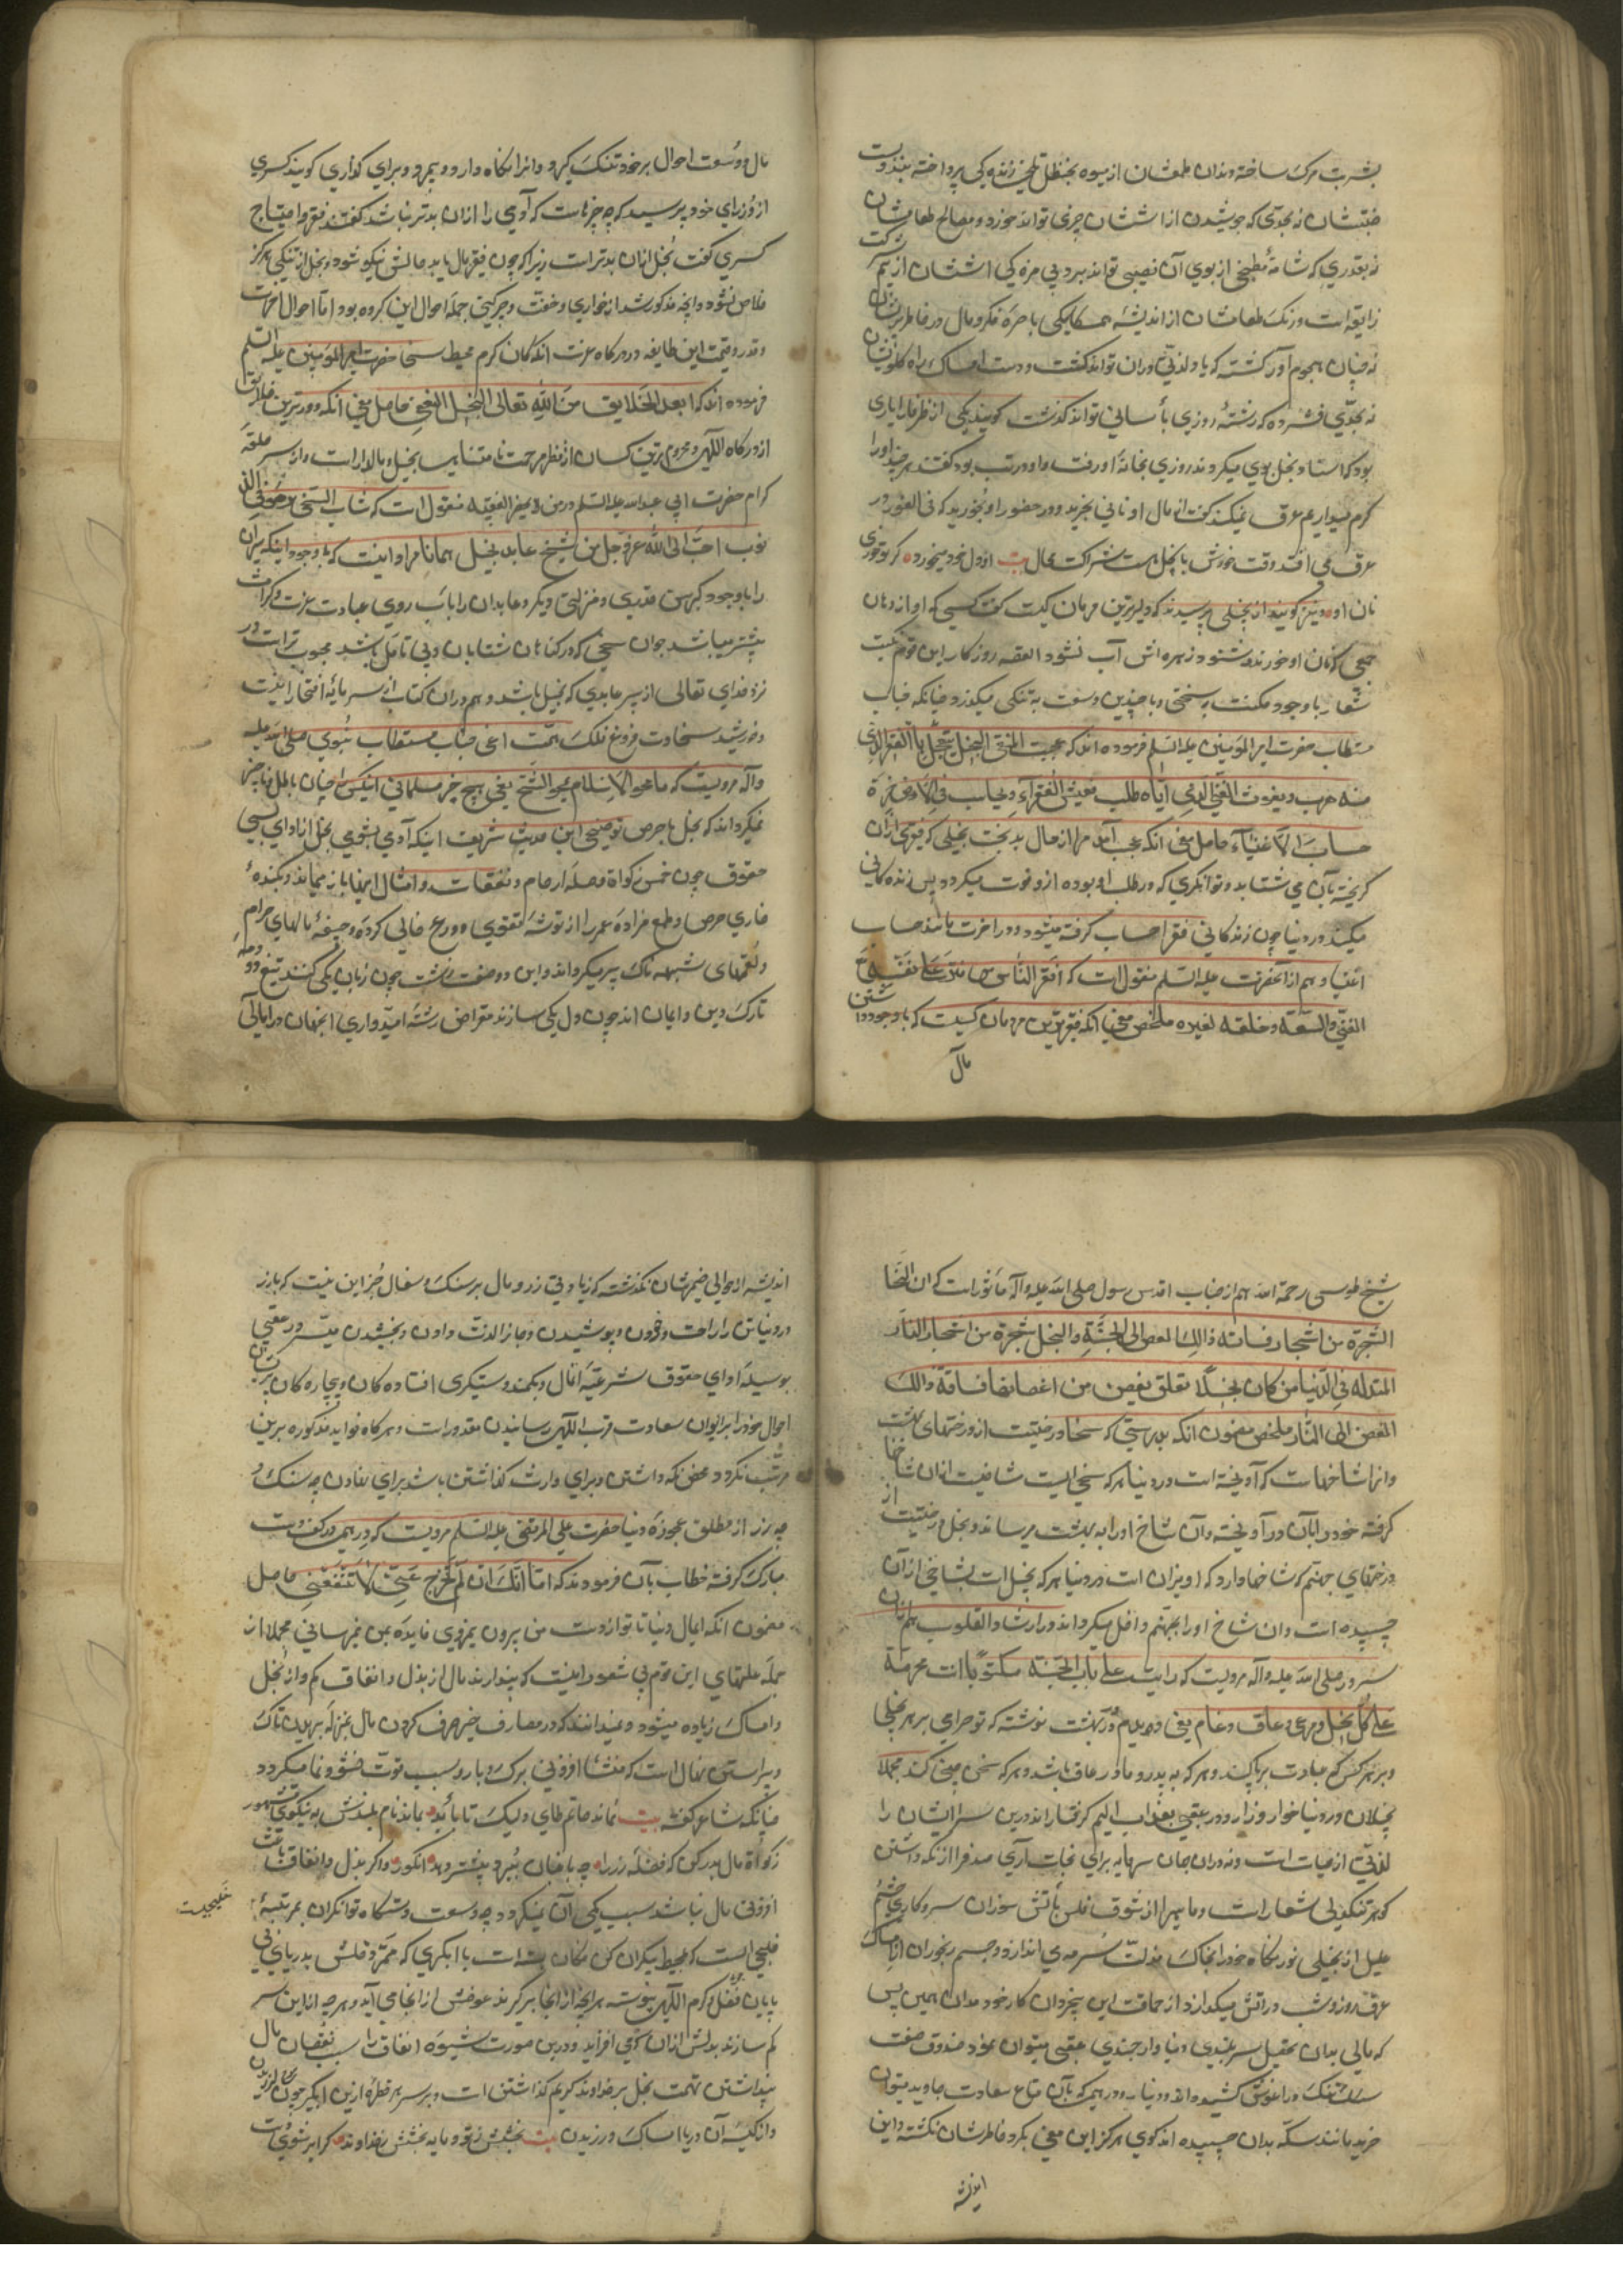 بشربت مرک ساخته دندان طمعشان از میوه بحنظل تلخی زندگی پرداخته
نه بحدی که جوشیدن از اششان چیزی تواند خورد و مصالح طعامشان
نه بقدری که شامهٔ مطبخی از بوی آن نصیبی تواند برد بی مزه کی اششان از
زایقه است و رنک طعامشان از اندیشه باصره فکر و مال در خاطرشان
نه چنان هجوم آور کشته که یاد لذتی دران تواند کذشت و دست امساک راه کلویشان
نه بحدی فشرده که رشتهٔ روزی بآسانی تواند کذشت کویند یکی از ظرفا را یاری
بود که استاد بخل بوی میکردند روزی بخانهٔ او رفت و او در تب بود کفت هر چند او را
کرم میداریم عرق نمیکند کفت از مال او نانی بخرید و در حضور او بخورید که فی الفور در
عرق می افتد وقت خورش با بخیل هست شراکت محال بیت از دل خود میخورد کر تو خوری
نان او و نیز کویند از بخیلی پرسیدند که دلیرترین مردمان کیست کفت کسی که اواز دهان
جمعی که نان او خورند بشنود زهره اش آب نشود القصه روزکار این قوم نکبت
شعار با وجود مکنت بسختی و با چندین وسعت به تنکی میکذرد چنانکه جناب
مستطاب حضرت امیر المؤمنین علیه السلم فرموده اند که عجبت للبخیل یستعجل بالفقر الذی
منه هرب و یفوت الغنی الذی ایاه طلب فیعیش الفقراء و یحاسب فی الاخرة
حساب الاغنیآء حاصل معنی انکه عجب آمد مرا از حال بدبخت بخیلی که فقیری ازان
کریخته بآن می شتابد و توانکری که در طلب او بوده ازو فوت میکردد پس زنده کانی
میکند در دنیا چون زندکانی فقرا و حساب کرفته میشود در اخرت مانند حساب
اغنیا و هم از آنحضرت علیه السلم منقول است که افقر الناس من قتر علی نفسه مع
الغنی والسعة و خلفه لغیره ملخص معنی انکه فقیرترین مردمان کسیت که با وجود داشتن
مال
مال و وسعت احوال بر خود تنک کیرد و انرا نکاه دارد و بمیرد و برای دیکری کویند کسری
از وزرای خود پرسید که چه چیز است که آدمی را ازان بدتر نباشد کفتند فقر و احتیاج
کسری کفت بخل ازان بدتر است زیرا که چون فقیر مال یابد حالش نیکو شود و بخیل از تنکی هرکز
خلاص نشود و آنچه مذکور شد از خواری و خفت جمله احوال این کروه بود اما احوال
و قدر و قیمت این طایفه در درکاه عزت انکه کان کرم محیط سخا حضرت امیر المؤمنین علیه السلم
فرموده اند که ابعد الخلایق من الله تعالی البخیل الغنی حاصل معنی انکه دورترین خلایق
از درکاه الهی و محروم ترین کسان از نظر مرحمت نامتناهی بخیل مالدار است و از سر حلقهٔ
کرام حضرت ابی عبدالله علیه السلم در من لا یحضر الفقیه منقول است که شاب السخی مرهق فی الذ
نوب احب الی الله عز و جل من شیخ عابد بخیل همانا مراد اینست که با وجود اینکه پیران
را با وجود کبر سن قدری و منزلتی دیکر و عابدان را بآب روی عبادت عزت و کرامت
بیشتر میباشد جوان سخی که در کناهان شتابان و بی تامل باشد محبوب تر است در
نزد خدای تعالی از پیر عابدی که بخیل باشد و هم دران کتاب از سرمایهٔ افتخار
و خورشید سخاوت فروغ فلک همت اعنی جناب مستطاب نبوی صلی الله علیه
وآله مرویست که ما محو الاسلام محو الشح یعنی هیچ چیز مسلمانی انکس را چنان باطل و ناچیز
نمیکرداند که بخل با حرص توضیح این حدیث شریف اینکه آدمی بشومی بخل از ادای بسی
حقوق چون خمس زکواة و صلهٔ ارحام و نفقات و امثال اینها باز میماند و بکندهٔ
خاری حرص و طمع مزادهٔ عمر را از توشه تقوی و ورع خالی کرده و جیفهٔ مالهای حرام
و لقمهای شبهه ناک پر میکرداند و این دو صفت زشت چون زبان یکی کنند تیغ دو دمهٔ
تارک دین و ایمان اند چون دل یکی سازند مقراض رشته امیدواری انجهان در امالی
شیخ طوسی رحمة الله هم از جناب اقدس رسول صلی الله علیه وآله ماثور است که ان السخا
الشجرة من اشجار فساقه ذالک الغصن الی الجنة والبخل شجرة من اشجار النار
المتدلیه فی الدنیا من کان بخیلا تعلق بغصن من اغصانها فساقه ذالک
الغصن الی النار ملخص مضمون انکه بدرستی که سخا درختیست از درختهای بهشت
و انرا شاخهاست که آویخته است در دنیا هر که سخی است شاخیست ازان شاخها
کرفته خود را بآن درآویخته و آن شاخ او را به بهشت میرساند و بخل درختیست از
درختهای جهنم که شاخها دارد که اویزان است در دنیا هر که بخیل است بشاخی از آن
چسپیده است و ان شاخ او را بجهنم داخل میکرداند و در ارشاد القلوب هم ازان
سرور صلی الله علیه وآله مرویست که رایت علی باب الجنة مکتوبا انت محرمة
علی کل بخیل و مرآی و عاق و نمام یعنی دیدم بر در بهشت نوشته که تو حرامی بر هر بخیلی
و بر هر کس که عبادت بریا کند و هر که به پدر و مادر عاق باشد و هر که سخن چینی کند مجملا
بخیلان در دنیا خوار و زار و در عقبی بعذاب الیم کرفتار اند درین سرایشان را
لذتی از حیات است و نه دران جهان سرمایه برای نجات آری صدف را از نکه داشتن
کوهر تنکدلی شعار است و ماهی را از شوق فلس بآتش سوزان سروکار چشم
علیل از بخیلی نور نکاه خود را بخاک مذلت سرمه می اندازد و جسم رنجوران از امساک
عرق روز و شب در آتش میکدازد از حماقت این بیخردان کار خود مدان همین بس
که مالی بدان تحصیل سربلندی دنیا و ارجمندی عقبی میتوان نمود صندوق صفت
تنک در آغوش کشیده اند و دنیار و درهمی که بآن متاع سعادت جاوید میتوان
خرید مانند سکه بدان چسپیده اند کوی هرکز این معنی بکرد خاطرشان نکشته و این
اندیشه
اندیشه از حوالی ضمیرشان نکذشته که زیادتی زر و مال بر سنک و سفال جز این نیست که بزر
در دنیا تن را راحت و خوردن و پوشیدن و جان را لذت دادن و بخشیدن میسر و در عقبی
بوسیلهٔ ادای حقوق شرعیه آنمال و بکمند دستکیری افتاده کان و بیچاره کان پریشان
احوال خود را بر ایوان سعادت قرب الهی رسانیدن مقدور است و هر کاه فواید مذکوره برین
مرتب نکردد و محض نکه داشتن و برای وارث کذاشتن باشد برای نهادن چه سنک و
چه زر از مطلق عجوزهٔ دنیا حضرت علی المرتضی علیه السلم مرویست که درهمی در کف دست
مبارک کرفته خطاب بآن فرمودند که اما انک ان لم تخرج عنی لا تنفعنی حاصل
مضمون انکه ای مال دنیا تا تو از دست من بیرون نمیروی فایده بمن نمیرسانی مجملا از
جمله غلطهای این قوم بی شعور اینست که پندارند مال از بذل و انفاق کم و از بخل
و امساک زیاده میشود و نمیدانند که در مصارف خیر صرف کردن مال بمنزلهٔ بریدن تاک
و پیراستن نهال است که منشاء افزونی برک و بار و سبب قوت نشو و نما میکردد
چنانکه شاعر کفته بیت نماند حاتم طای و لیک تا باید بماند نام بلندش به نیکوی مشهور
زکواة مال بدر کن که فضلهٔ رز را چه باغبان ببرد بیشتر دهد انکور و اکر بذل و انفاق باعث
افزونی مال نباشد سبب کمی آن نمیکردد چه وسعت دستکاه توانکران بمرتبهٔ
خلیجی است که بمحیط بیکران کن فکان پیوسته است یا ابکیری که ممر و فلش بدریای بی
پایان فضل و کرم الهی پیوسته هر انچه از انجا برکیرند عوض از انجا می آید و هر چه از این سر
کم سازند بدلش ازان کوی افزاید و درین صورت شیوه انفاق را سبب نقصان مال
پنداشتن تهمت بخل بر خداوند کریم کذاشتن است و بر سر هر قطره ازین ابکیر چون
و از کیسهٔ آن دریا امساک ورزیدن بیت بخشش ز تو و مایه بخشش ز خداوند کر ابر شوی